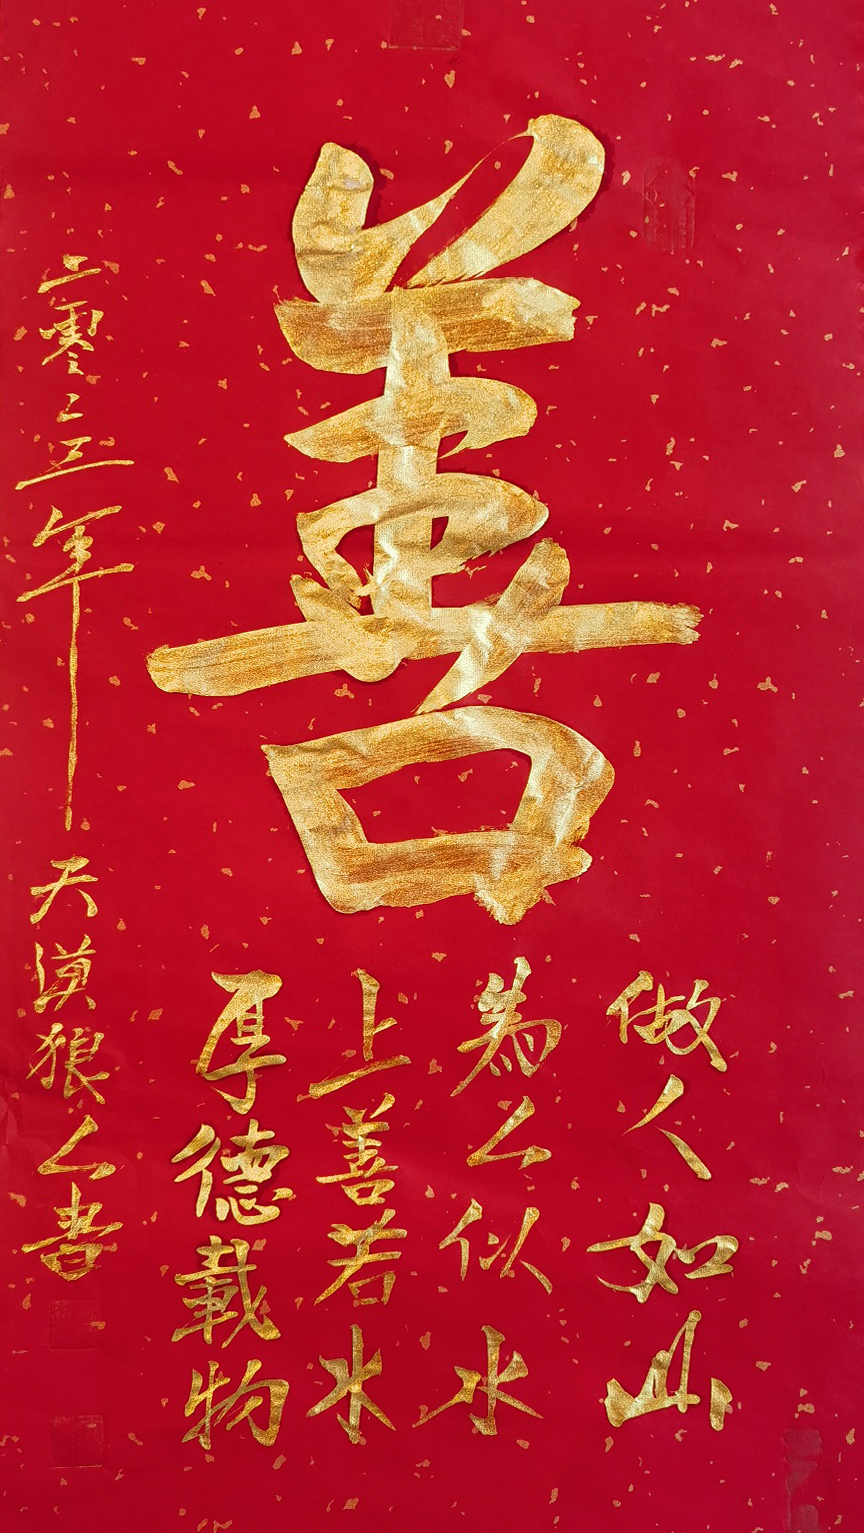 善
做人如山
為人似水
上善若水
厚德載物
二零二五年天漠狼人書